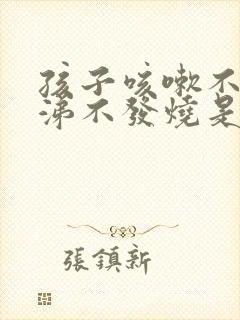 孩子咳嗽不
涕不發燒是
張鎮新